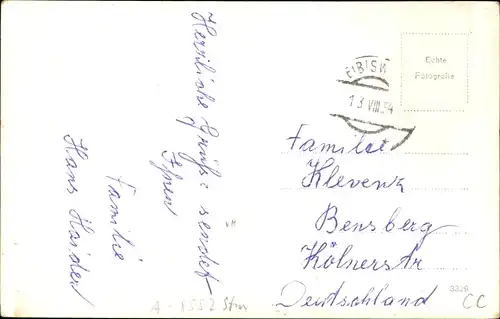 Herzliche Grüße sendet
Ihnen
Familie
Hans Haiden
Echte
Fotografie
EIBISW
13 VIII. 54
Familie
Klevenz
Bensberg
Kölnerstr
Deutschland
3329
A-8552
CC